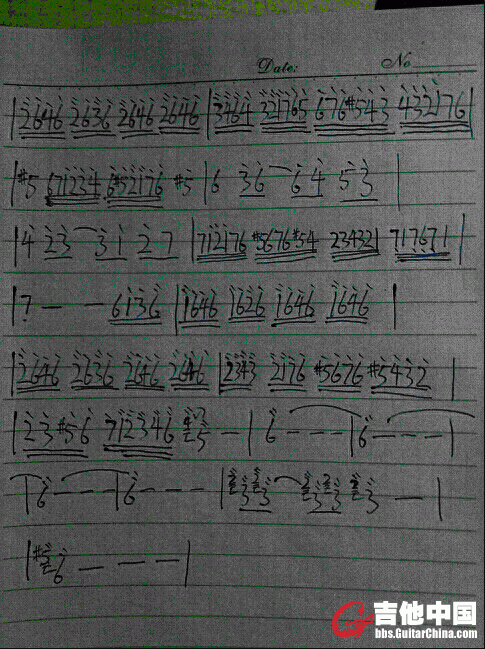 Date: No
|2646 2636 2646 2646|3464 321765 676#543 432176|
|#5 671234 6#52176 #5|6 36 64 53|
|4 23 31 27|712176 #5676#54 23432|717671|
|7 — — 6136|1646 1626 1646 1646|
|2646 2636 2646 2646|2343 2176 #5676 #5432|
|23#56 712346 5 —|6 - - -|6 - - -|
|6 - - -|6 - - -|3 3 3 3 3 — |
|#5 6 — — —|
吉他中国
bbs.GuitarChina.com